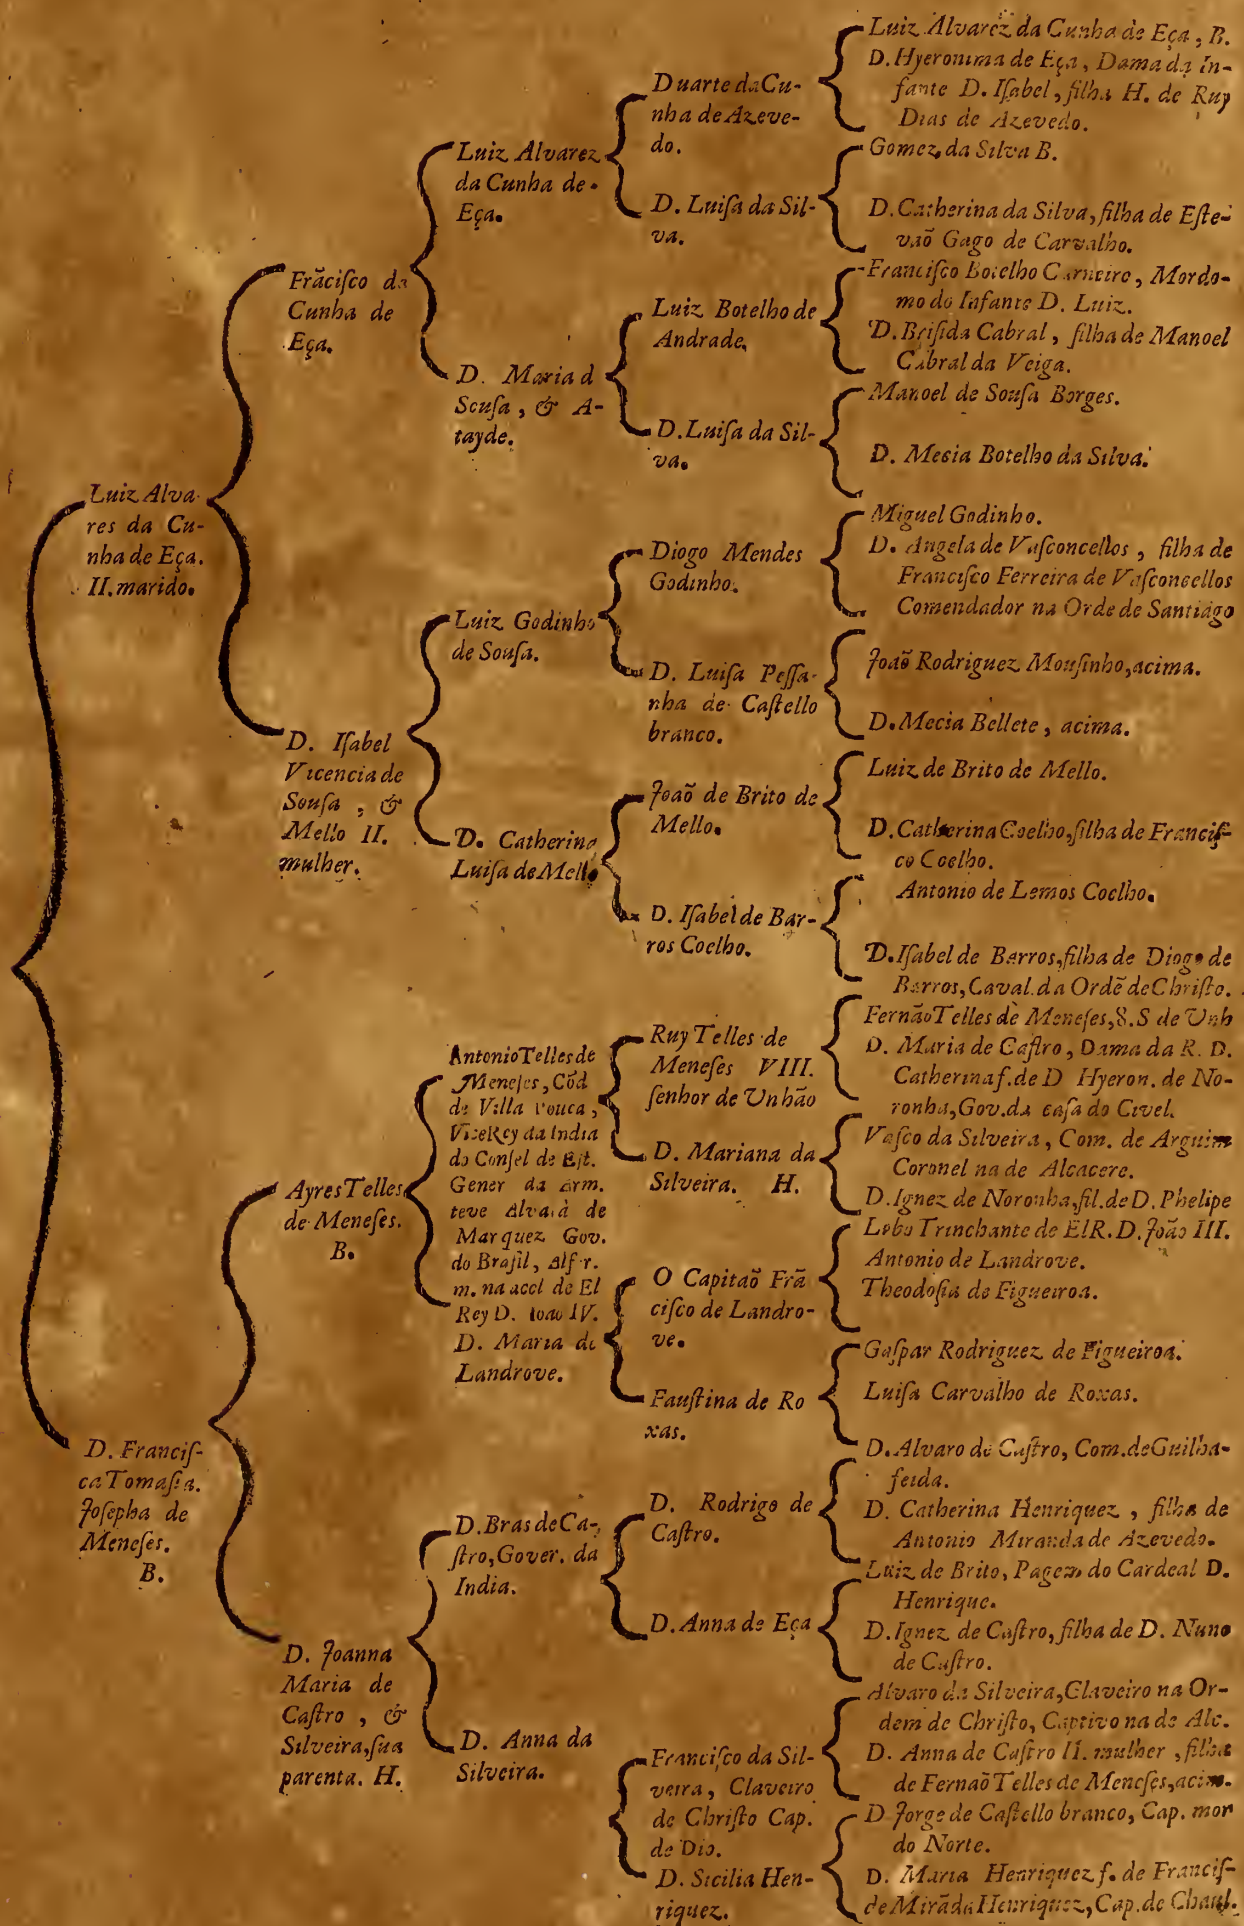 Luiz Alva
res da Cu-
nha de Eça.
II. marido.
D. Franciſ-
ca Tomaſia.
Joſepha de
Meneſes.
B.
Frãciſco da
Cunha de
Eça.
D. Iſabel
Vicencia de
Souſa, &
Mello II.
mulher.
Ayres Telles
de Meneſes.
B.
D. Joanna
Maria de
Caſtro, &
Silveira, ſua
parenta. H.
Luiz Alvarez
da Cunha de
Eça.
D. Maria d
Souſa, & A-
tayde.
Luiz Godinho
de Souſa.
D. Catherina
Luiſa de Mello
Antonio Telles de
Meneſes, Cõd
de Villa Pouca,
ViceRey da India
do Conſel de Eſt.
Gener da Arm.
teve Alvará de
Marquez Gov.
do Braſil, Alf r.
m. na accl de El
Rey D. Ioao IV.
D. Maria de
Landrove.
D. Bras de Ca-
ſtro, Gover. da
India.
D. Anna da
Silveira.
Duarte da Cu-
nha de Azeve-
do.
D. Luiſa da Sil-
va.
Luiz Botelho de
Andrade.
D. Luiſa da Sil-
va.
Diogo Mendes
Godinho.
D. Luiſa Peſſa-
nha de Caſtello
branco.
Joaõ de Brito de
Mello.
D. Iſabel de Bar-
ros Coelho.
Ruy Telles de
Meneſes VIII.
ſenhor de Unhão
D. Mariana da
Silveira. H.
O Capitaõ Frã
ciſco de Landro-
ve.
Fauſtina de Ro
xas.
D. Rodrigo de
Caſtro.
D. Anna de Eça
Franciſco da Sil-
veira, Claveiro
de Chriſto Cap.
de Dio.
D. Sicilia Hen-
riquez.
Luiz Alvarez da Cunha de Eça, B.
D. Hyeronima de Eça, Dama da In-
fante D. Iſabel, filha H. de Ruy
Dias de Azevedo.
Gomez da Silva B.
D. Catherina da Silva, filha de Eſte-
vaõ Gago de Carvalho.
Franciſco Botelho Carneiro, Mordo-
mo do Infante D. Luiz.
D. Briſida Cabral, filha de Manoel
Cabral da Veiga.
Manoel de Souſa Borges.
D. Mecia Botelho da Silva.
Miguel Godinho.
D. Angela de Vaſconcellos, filha de
Franciſco Ferreira de Vaſconcellos
Comendador na Orde de Santiago
Joaõ Rodriguez Mouſinho, acima.
D. Mecia Bellete, acima.
Luiz de Brito de Mello.
D. Catherina Coelho, filha de Franciſ-
co Coelho.
Antonio de Lemos Coelho.
D. Iſabel de Barros, filha de Diogo de
Barros, Caval. da Ordẽ de Chriſto.
Fernão Telles de Meneſes, 8. S de Unh
D. Maria de Caſtro, Dama da R. D.
Catherina f. de D Hyeron. de No-
ronha, Gov. da caſa do Civel.
Vaſco da Silveira, Com. de Arguim
Coronel na de Alcacere.
D. Ignez de Noronha, fil. de D. Phelipe
Lobo Trinchante de El R. D. João III.
Antonio de Landrove.
Theodoſia de Figueiroa.
Gaſpar Rodriguez de Figueiroa.
Luiſa Carvalho de Roxas.
D. Alvaro de Caſtro, Com. de Guilha-
feida.
D. Catherina Henriquez, filha de
Antonio Miranda de Azevedo.
Luiz de Brito, Pagem do Cardeal D.
Henrique.
D. Ignez de Caſtro, filha de D. Nuno
de Caſtro.
Alvaro da Silveira, Claveiro na Or-
dem de Chriſto, Captivo na de Alc.
D. Anna de Caſtro II. mulher, filha
de Fernaõ Telles de Meneſes, acim.
D Jorge de Caſtello branco, Cap. mor
do Norte.
D. Maria Henriquez f. de Franciſ-
de Mirãda Henriquez, Cap. de Chaul.